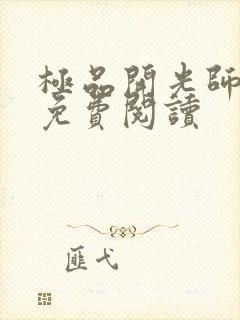 極品開光師
免費閱讀
匪弋